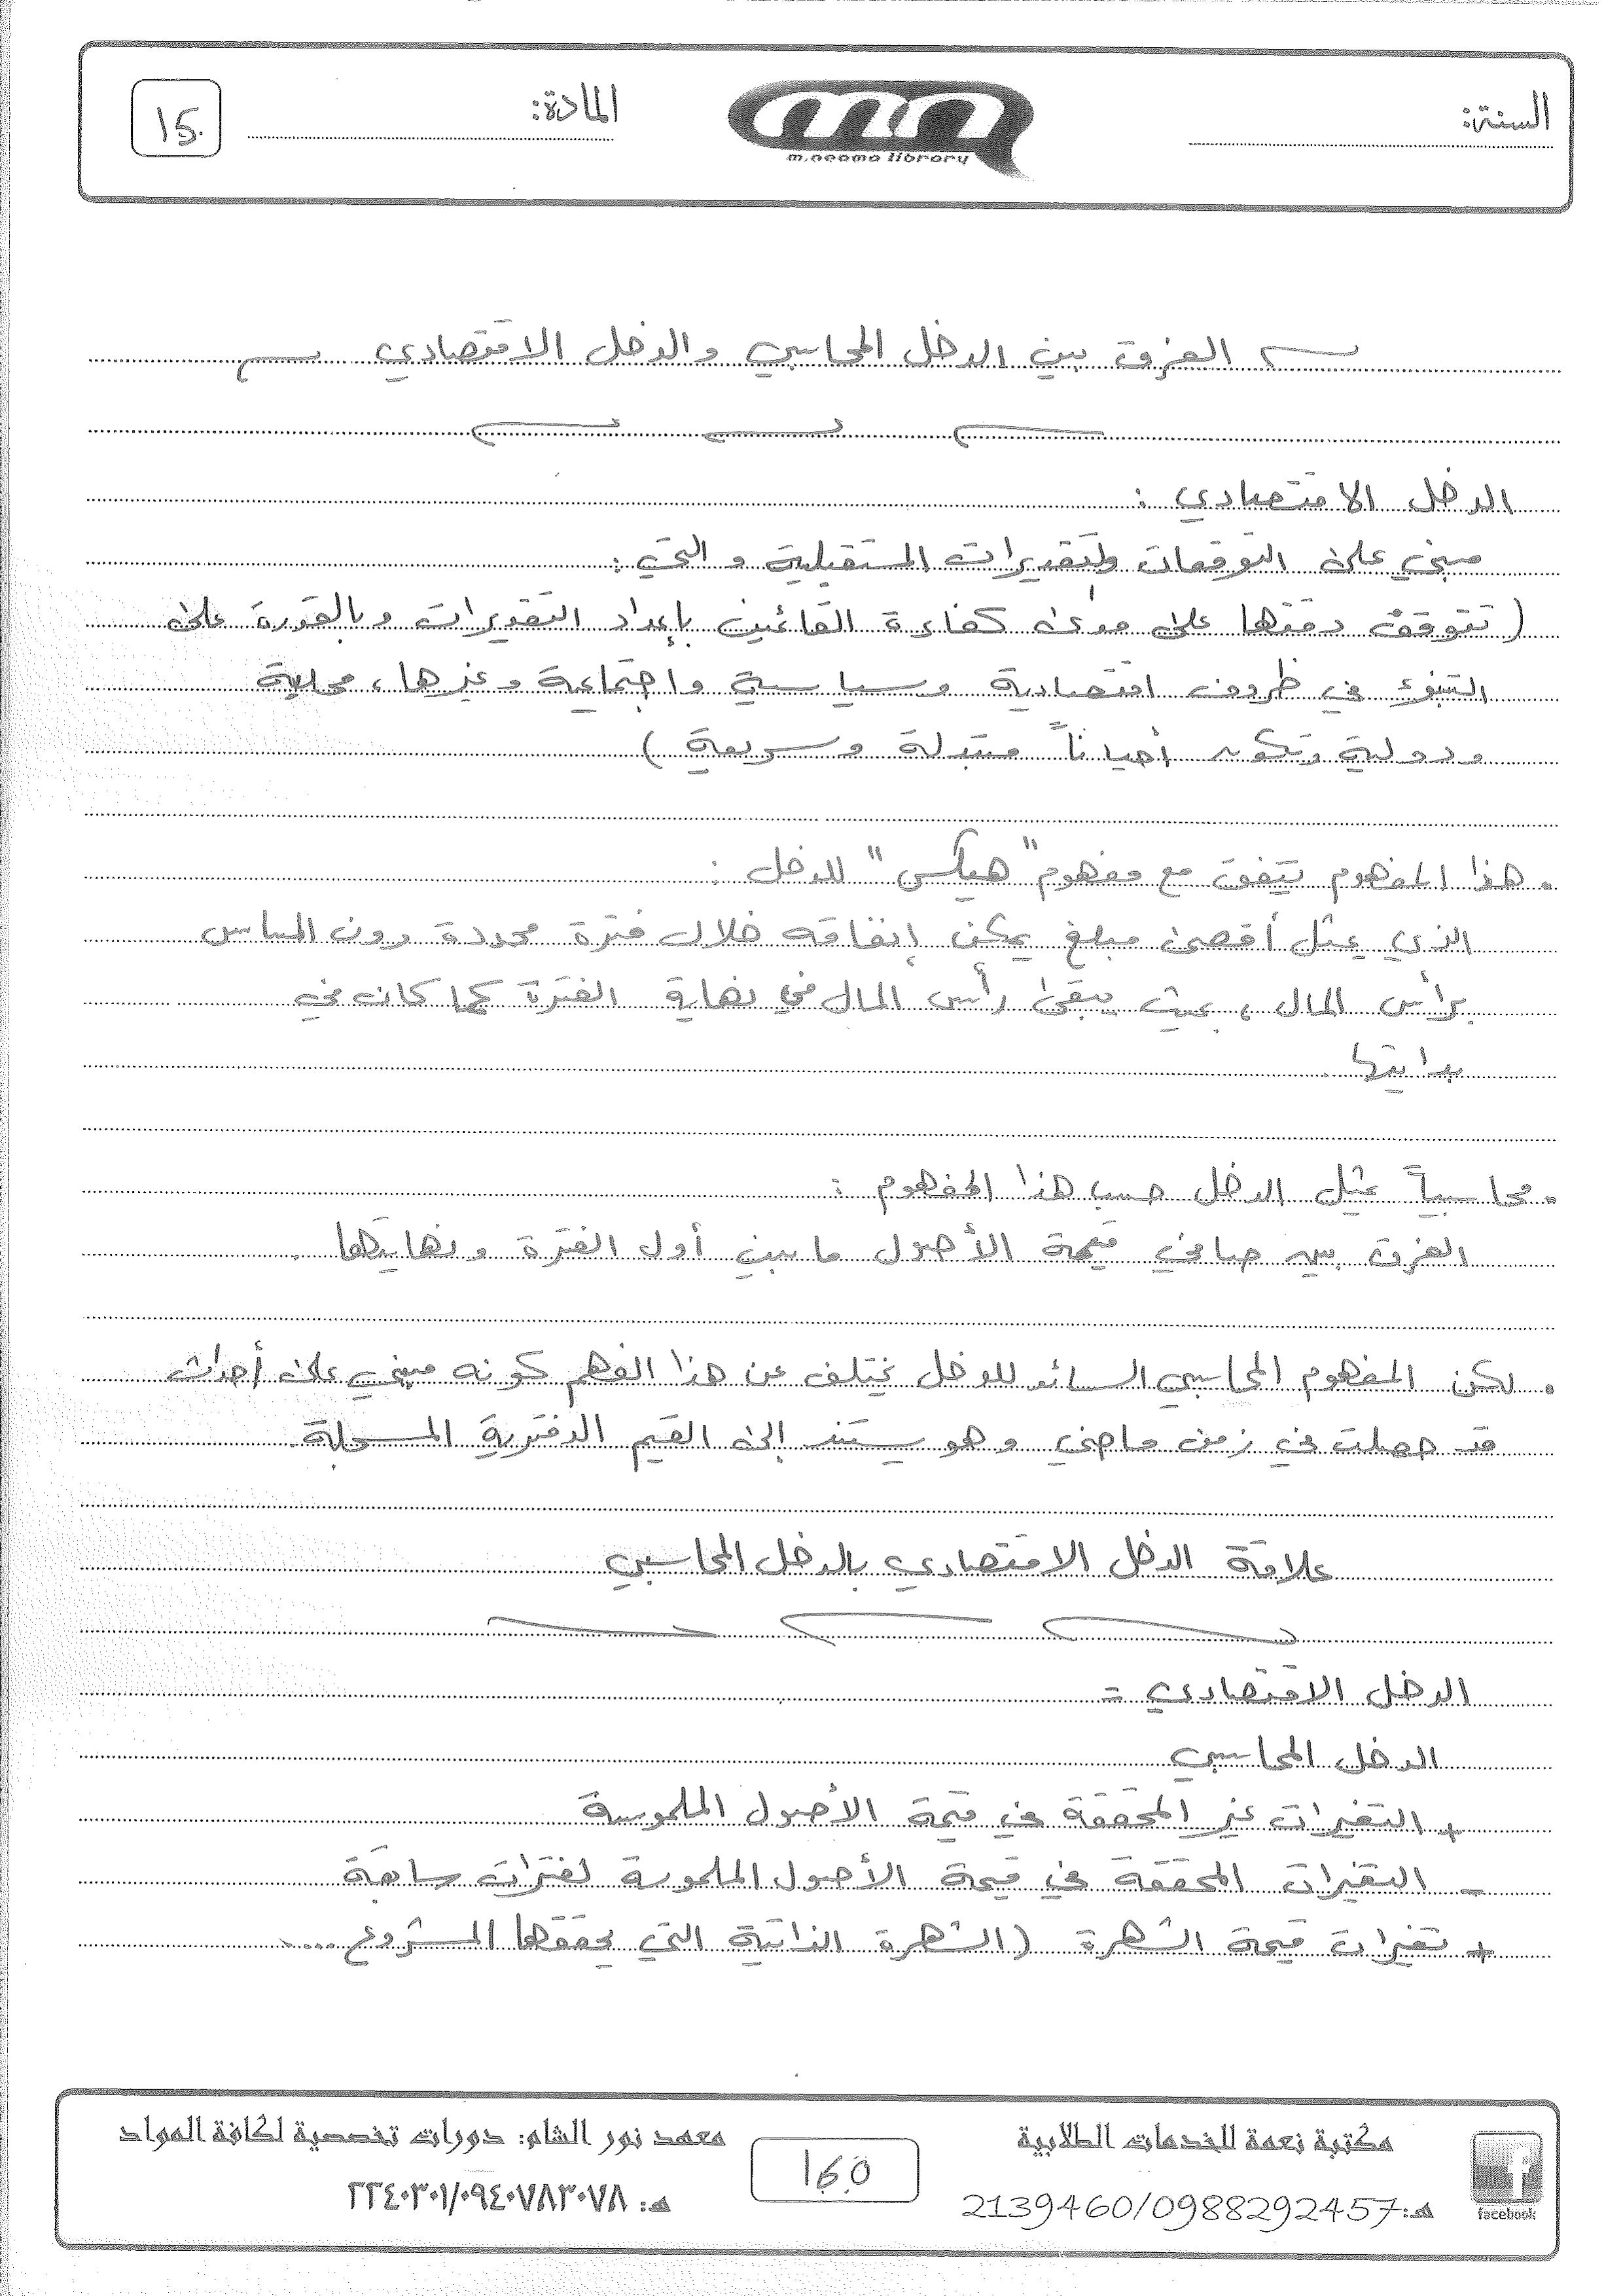 السنة:
m.neama library
المادة:
15
الفرق بين الدخل المحاسبي والدخل الاقتصادي
الدخل الاقتصادي :
مبني على التوقعات ولتقديرات المستقبلية والتي :
( تتوقف دقتها على مدى كفاءة القائمين بإعداد التقديرات وبالقدرة على
التنبؤ في ظروف اقتصادية وسياسية واجتماعية وغيرها، محلية
ودولية وتكون أحياناً متبدلة وسريعة )
. هذا المفهوم يتفق مع مفهوم "هيكس" للدخل :
الذي يمثل أقصى مبلغ يمكن إنفاقه خلال فترة محددة دون المساس
برأس المال ، بحيث يبقى رأس المال في نهاية الفترة كما كان في
بدايتها .
. محاسبياً يمثل الدخل حسب هذا المفهوم :
الفرق بين صافي قيمة الأصول ما بين أول الفترة ونهايتها .
. لكن المفهوم المحاسبي السائد للدخل يختلف عن هذا الفهم كونه مبني على أحداث
قد حصلت في زمن ماضي وهو يستند إلى القيم الدفترية المسجلة.
علاقة الدخل الاقتصادي بالدخل المحاسبي
الدخل الاقتصادي =
الدخل المحاسبي
+ التغيرات غير المحققة في قيمة الأصول الملموسة
- التغيرات المحققة في قيمة الأصول الملموسة لفترات سابقة
+ تغيرات قيمة الشهرة ( الشهرة الذاتية التي يحققها المشروع ....
مكتبة نعمة للخدمات الطلابية
هـ:2139460/0988292457
facebook
معهد نور الشام: دورات تخصصية لكافة المواد
هـ: ٢٢٤٠٣٠١/٠٩٤٠٧٨٣٠٧٨